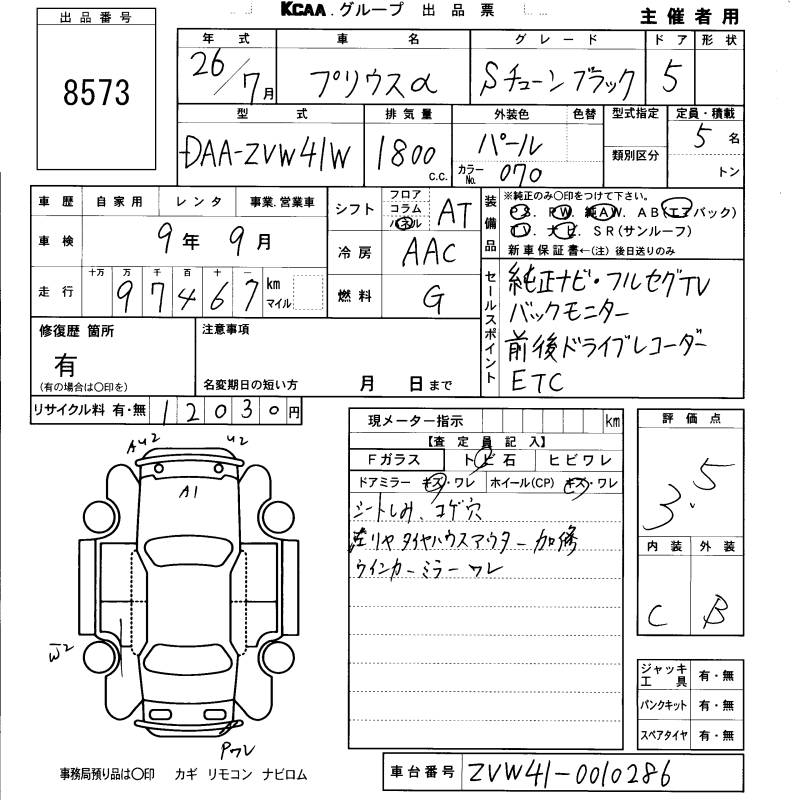 KCAA.グループ 出品票
主催者用
出品番号
8573
年式 車名 グレード ドア 形状
26/7月 プリウスα Sチューンブラック 5
型式 排気量 外装色 色替 型式指定 定員・積載
DAA-ZVW41W 1800 c.c. パール 5名
カラーNo. 070 類別区分 トン
車歴 自家用 レンタ 事業.営業車
車検 9年 9月
走行 十万 万 千 百 十 一 km マイル
9 7 4 6 7
シフト フロア コラム パネル AT
冷房 AAC
燃料 G
装備品 ※純正のみ〇印をつけて下さい。
P.S. P.W. 純AW. AB(エアバック)
TV. ナビ. SR(サンルーフ)
新車保証書←(注)後日送りのみ
セールスポイント
純正ナビ・フルセグTV
バックモニター
前後ドライブレコーダー
ETC
修復歴 箇所
有
(有の場合は〇印を)
注意事項
名変期日の短い方 月 日まで
リサイクル料 有・無 12030円
現メーター指示 km
【査定員記入】
Fガラス トビ石 ヒビワレ
ドアミラー キズ・ワレ ホイール(CP) キズ・ワレ
シートしみ、コゲ穴
左リヤタイヤハウスアウター加修
ウインカーミラーワレ
評価点
3.5
内装 外装
C B
AU2 U2
A1
W2
Pワレ
ジャッキ工具 有・無
パンクキット 有・無
スペアタイヤ 有・無
事務局預り品は〇印 カギ リモコン ナビロム
車台番号 ZVW41-0010286